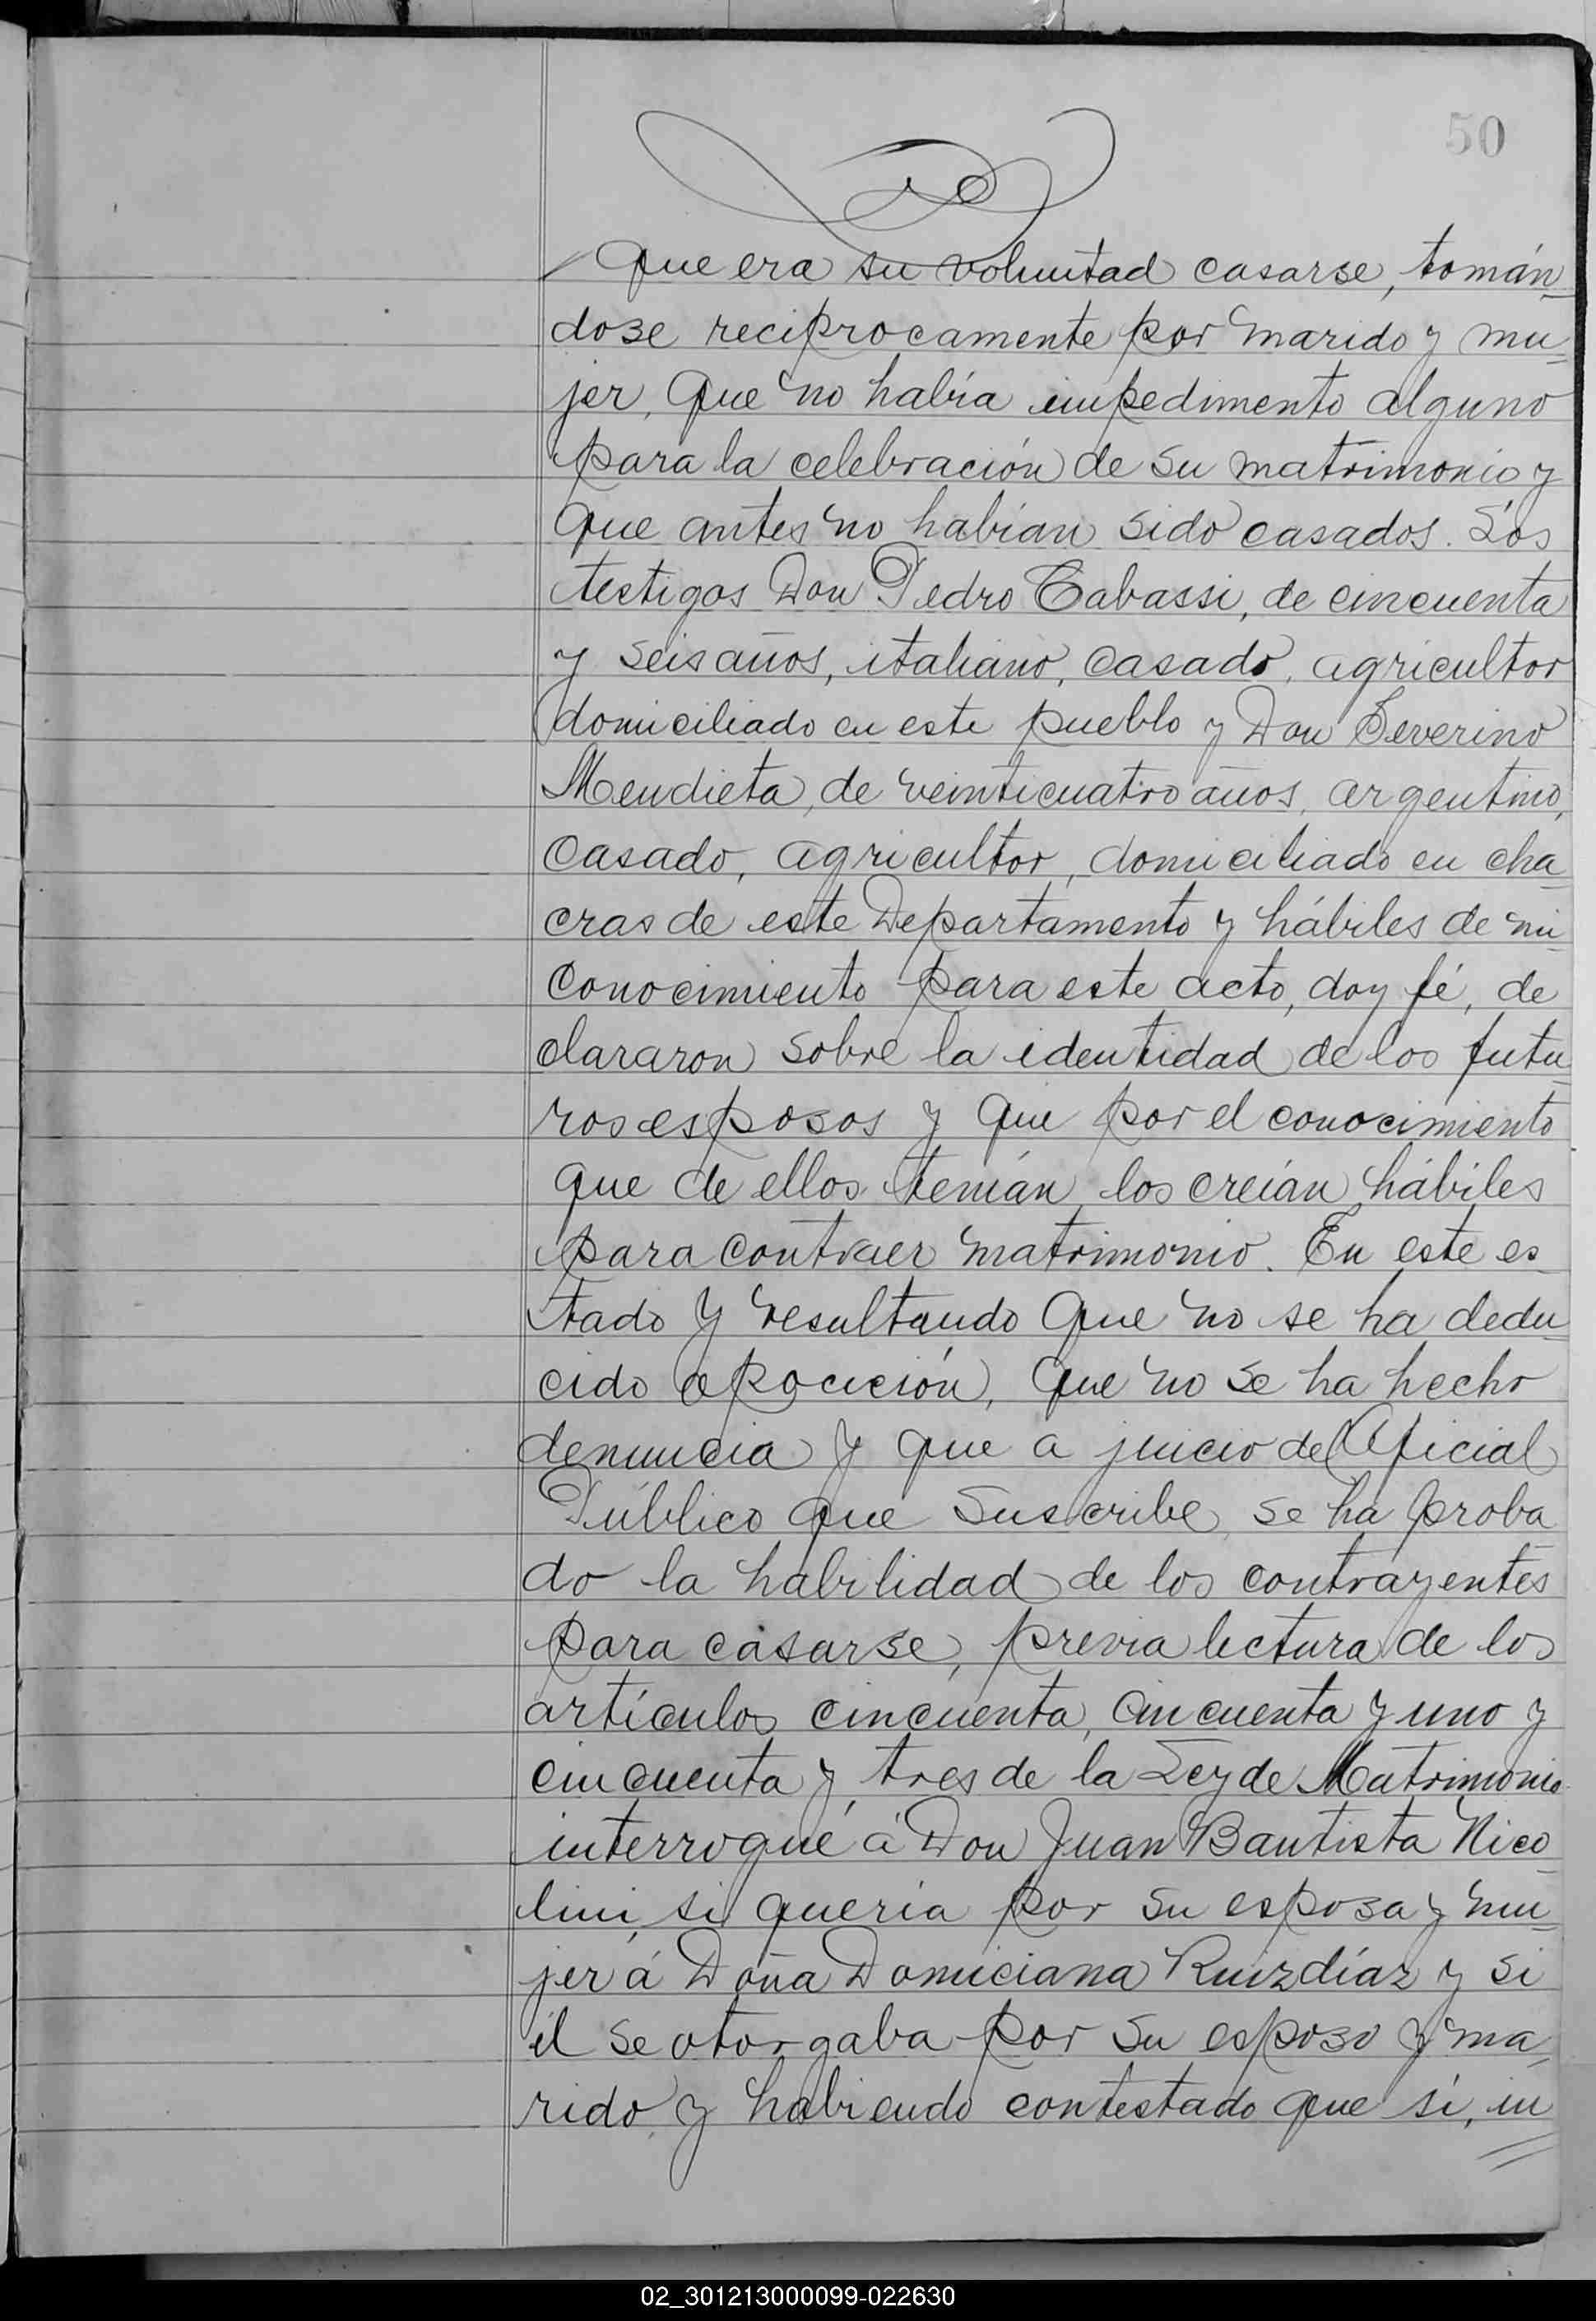 50
que era su voluntad casarse, tomán-
dose reciprocamente por marido y mu-
jer, que no había impedimento alguno
para la celebración de su matrimonio y
que antes no habían sido casados. Los
testigos Don Pedro Cabassi, de cincuenta
y seis años, italiano, casado, agricultor
domiciliado en este pueblo y Don Severino
Mendieta, de veinticuatro años, argentino,
casado, agricultor, domiciliado en cha-
cras de este Departamento y hábiles de mi
conocimiento para este acto, doy fé, de
clararon sobre la identidad de los futu-
ros esposos y que por el conocimiento
que de ellos tenían, los creían hábiles
para contraer matrimonio. En este es-
tado y resultando que no se ha dedu-
cido oposición, que no se ha hecho
denuncia y que a juicio del Oficial
Público que suscribe, se ha proba-
do la habilidad de los contrayentes
para casarse, previa lectura de los
artículos cincuenta, cincuenta y uno y
cincuenta y tres de la Ley de Matrimonio
interrogué á Don Juan Bautista Nico-
lini, si quería por su esposa y mu-
jer á Doña Domiciana Ruizdíaz y si
él se otorgaba por su esposo y ma-
rido, y habiendo contestado que sí, in
02_301213000099-022630